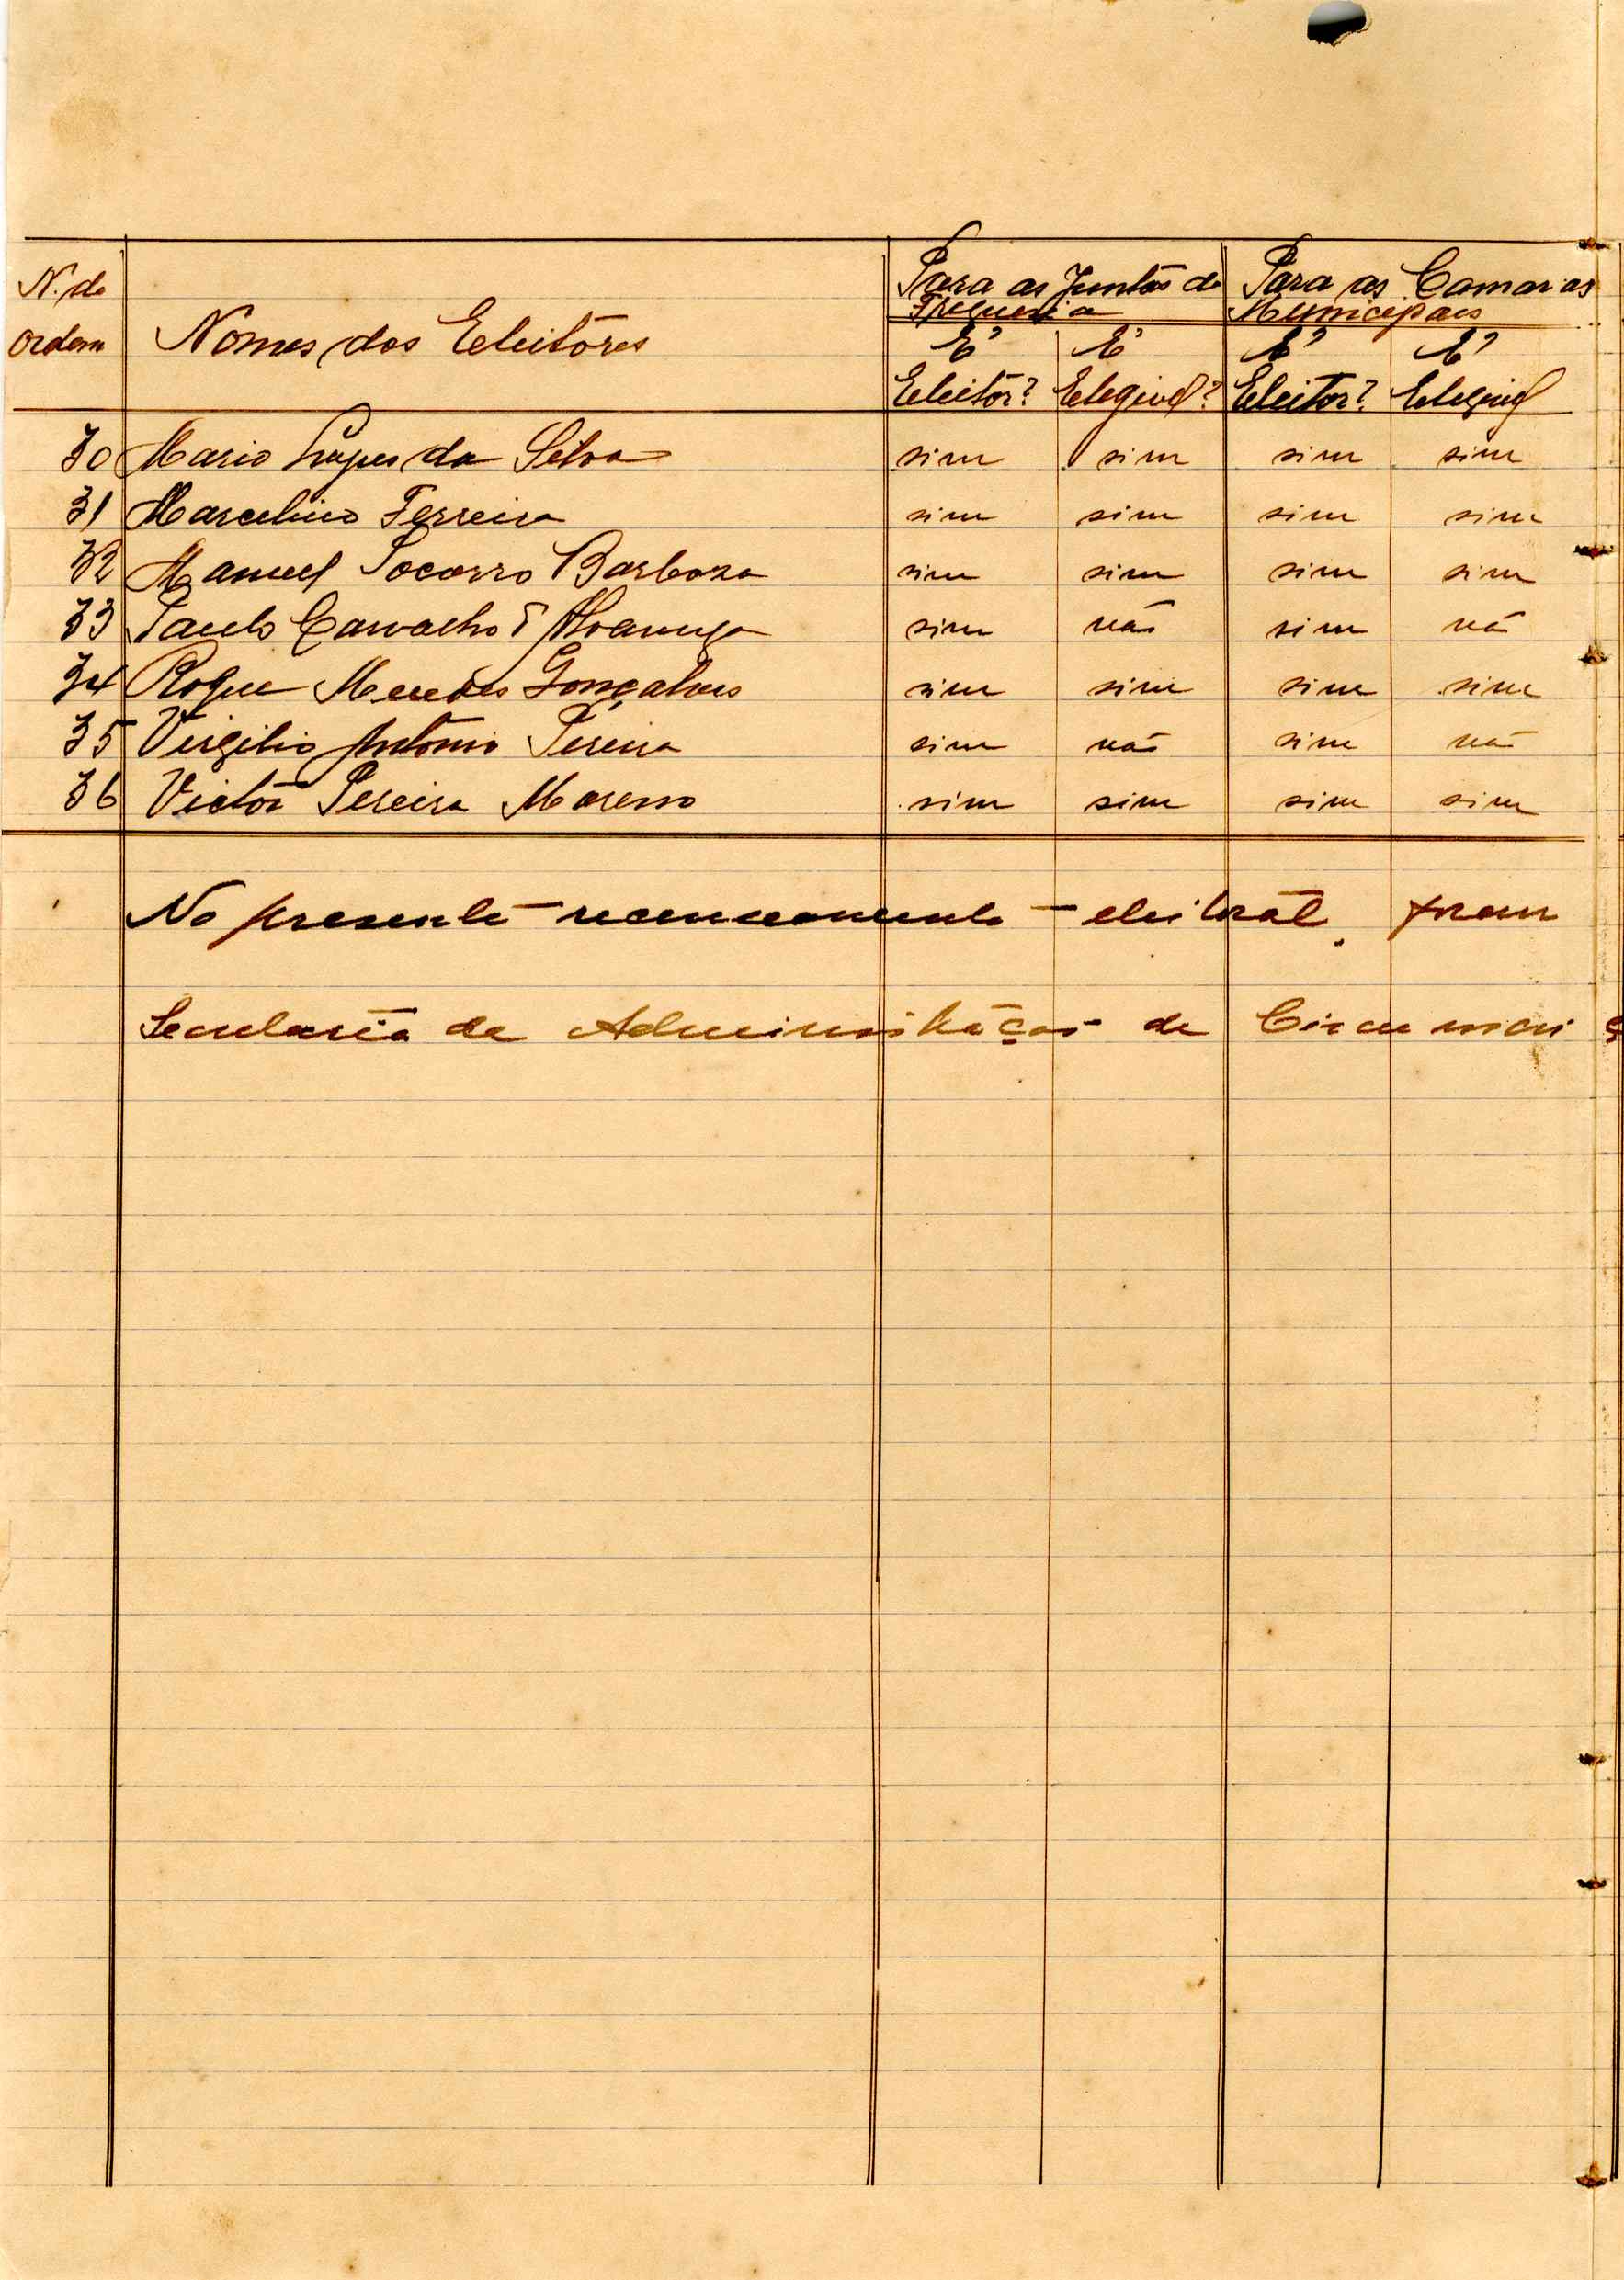 N. de ordem Nomes dos Eleitôres Para as Juntas de Freguesia Para as Camaras Municipaes
É Eleitôr? É Elegivel? É Eleitor? É Elegivel
30 Mario Lopes da Silva sim sim sim sim
31 Marcelino Ferreira sim sim sim sim
32 Manuel Socorro Barboza sim sim sim sim
33 Paulo Carvalho d'Alvarenga sim não sim não
34 Roque Mendes Gonçalves sim sim sim sim
35 Virgilio António Pereira sim não sim não
36 Victôr Pereira Moreno sim sim sim sim
No presente recenceamento eleitoral, foram
Secretaria da Administração de Circunscriç